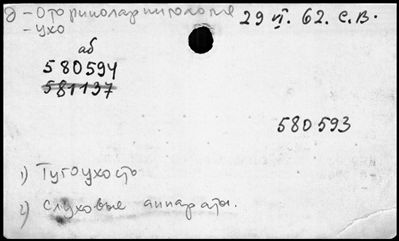 д - Оториноларингология 29 VI. 62. С.В.
- ухо
аб
580594
581137
580593
1) Тугоухость
2) Слуховые аппараты.